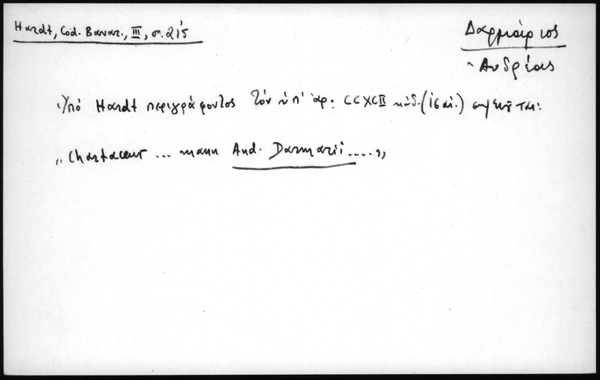 Hardt, Cod. Bavar., III, σ. 215
Δαρμάριος
Ἀνδρέας
Ὑπὸ Hardt περιγράφοντος τὸν ὑπ' ἀρ. CCXCII κώδ.
„Chartaceus ... manu And. Darmarii ....„